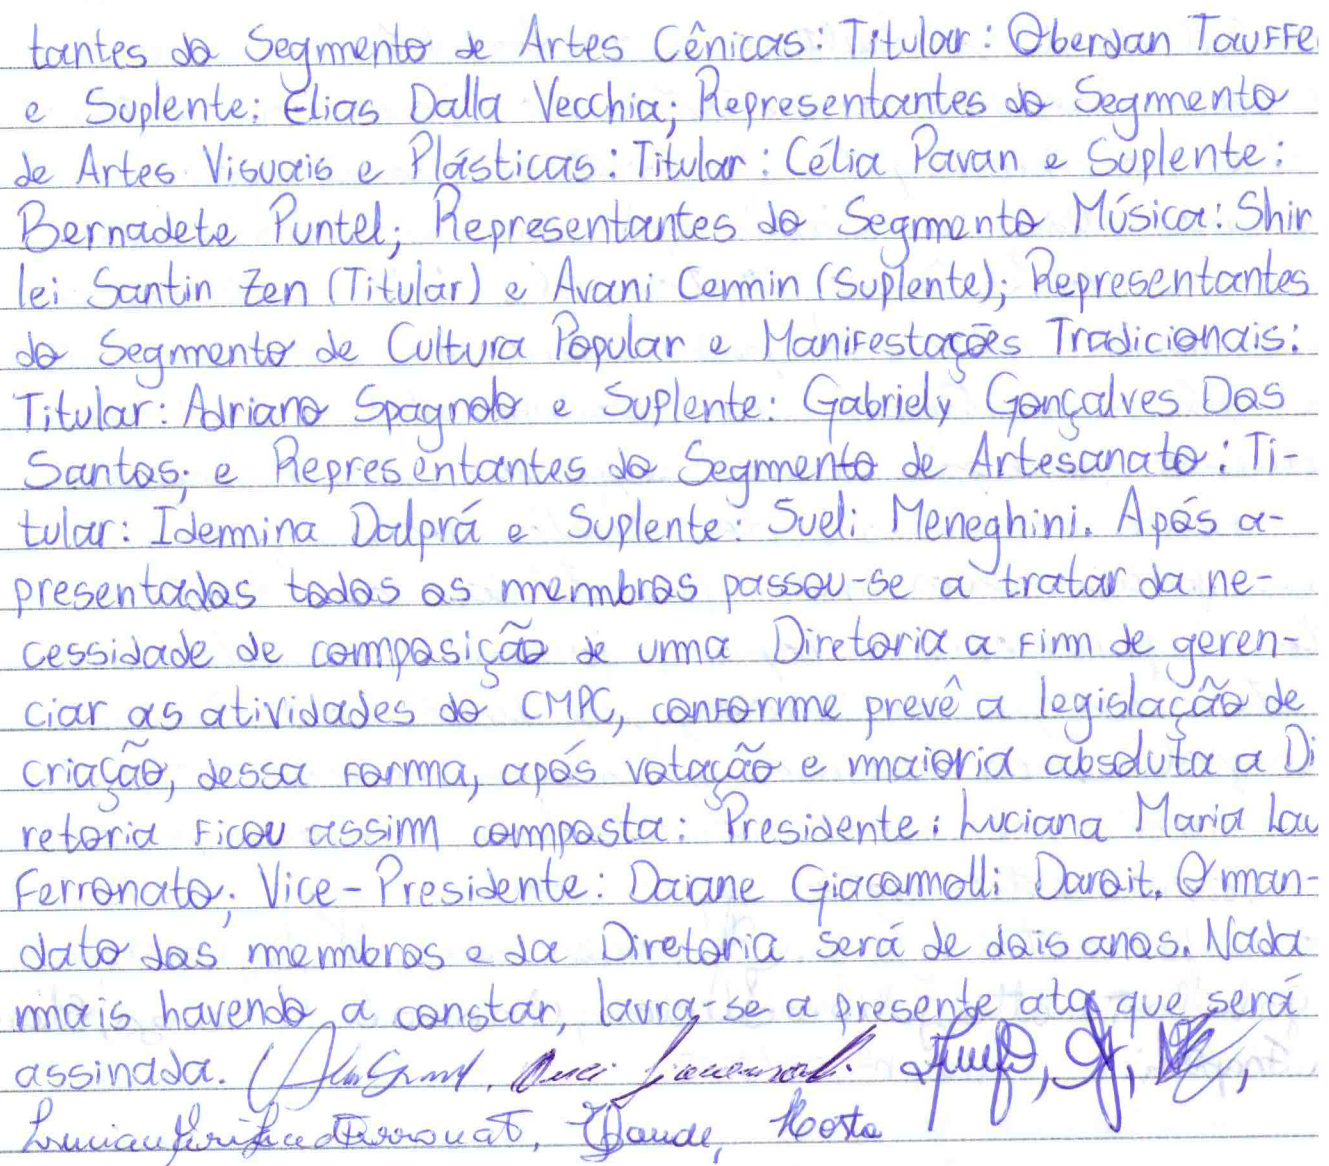 tantes do Segmento de Artes Cênicas: Titular: Oberdan Tauffe
e Suplente: Elias Dalla Vecchia; Representantes do Segmento
de Artes Visuais e Plásticas: Titular: Célia Pavan e Suplente:
Bernadete Puntel; Representantes do Segmento Música: Shir
lei Santin Zen (Titular) e Avani Cemin (Suplente); Representantes
do Segmento de Cultura Popular e Manifestações Tradicionais:
Titular: Adriano Spagnolo e Suplente: Gabriely Gonçalves Dos
Santos; e Representantes do Segmento de Artesanato: Ti-
tular: Idemina Dalprá e Suplente: Sueli Meneghini. Após a-
presentados todos os membros passou-se a tratar da ne-
cessidade de composição de uma Diretoria a fim de geren-
ciar as atividades do CMPC, conforme prevê a legislação de
criação, dessa forma, após votação e maioria absoluta a Di
retoria ficou assim composta: Presidente: Luciana Maria Lau
Ferronato; Vice-Presidente: Daiane Giacomolli Daroit. O man-
dato dos membros e da Diretoria será de dois anos. Nada
mais havendo a constar, lavra-se a presente ata que será
assinada.